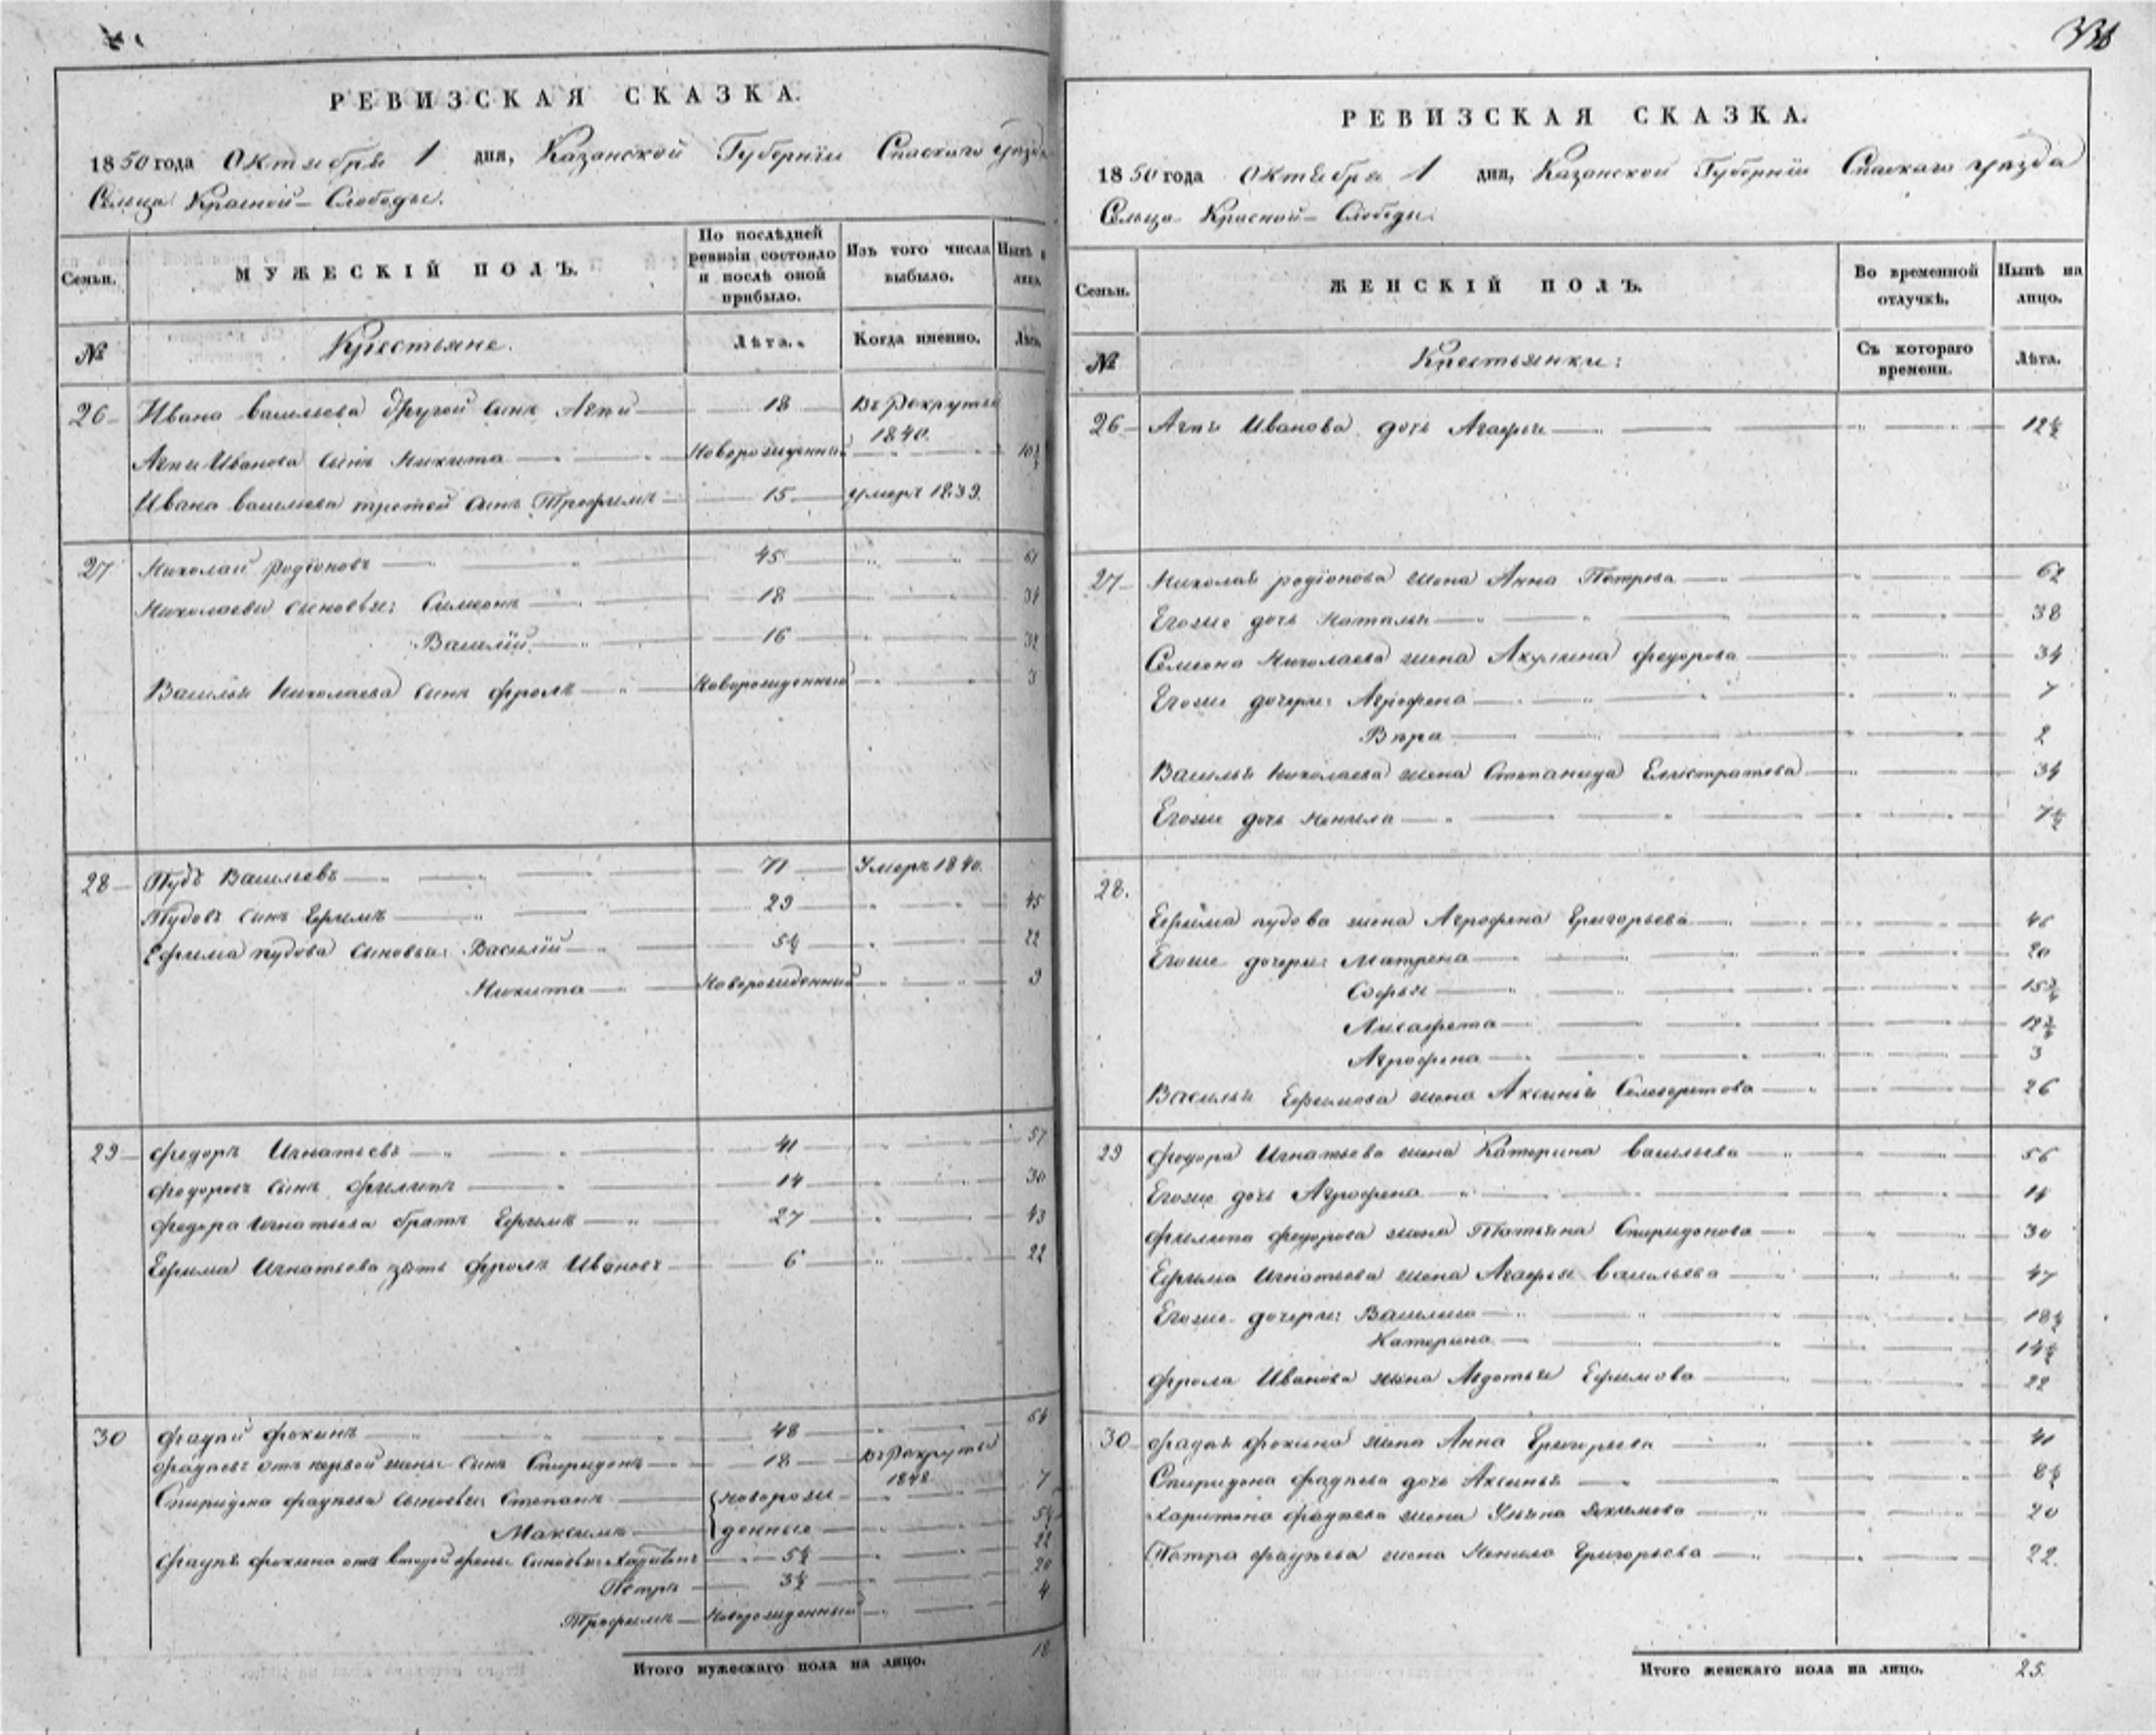 РЕВИЗСКАЯ СКАЗКА.
1850 года Октября 1 дня, Казанской Губернїи Спаскаго уезда
Сельца Красной- Слободы.
Семьи. МУЖЕСКІЙ ПОЛЪ. По послѣдней ревизіи состояло и послѣ оной прибыло. Изъ того числа выбыло. Нынѣ на лицо.
№ Крестьяне. Лѣта. Когда именно. Лѣта.
26 Ивана Васильева другой сынъ Агпи 18 Въ Рекруты 1840.
Агпи Иванова сынъ Никита Новорожденный 10½
Ивана Васильева третей сынъ Трофимъ 15 умеръ 1839.
27 Николай Родїоновъ 45 61
Николаевы сыновья: Симеонъ 18 34
Василїй 16 32
Василья Николаева сынъ фролъ Новорожденный 3
28 Пудъ Васильевъ 71 Умеръ 1840.
Пудовъ сынъ Ефимъ 29 45
Ефима пудова сыновья: Василїй 5½ 22
Никита Новорожденный 9
29 федоръ Игнатьевъ 41 57
федоровъ сынъ филипъ 14 30
федора Игнатьева братъ Ефимъ 27 43
Ефима Игнатьева зять фролъ Ивановъ 6 22
30 фадѣй фокинъ 48 64
фадѣевъ отъ первой жены сынъ Спиридонъ 18 Въ Рекруты 1848
Спиридона фадѣева сыновья Степанъ Новорож- 7
Максимъ денные 5½
фадѣя фокина отъ второй жены сыновья: Харитонъ 5½ 22
Петръ 3½ 20
Трофимъ Новорожденный 4
Итого мужескаго пола на лицо. 18
РЕВИЗСКАЯ СКАЗКА.
1850 года Октября 1 дня, Казанской Губернїи Спаскаго уезда
Сельца Красной- Слободы.
Семьи. ЖЕНСКІЙ ПОЛЪ. Во временной отлучкѣ. Нынѣ на лицо.
№ Крестьянки: Съ котораго времени. Лѣта.
26 Агпи Иванова дочь Агафья 12½
27 Николая родїонова жена Анна Петрова 62
Егоже дочь Наталья 38
Семиона Николаева жена Акулина федорова 34
Егоже дочери: Агрофена 7
Вѣра 2
Василья Николаева жена Степанида Елистратова 34
Егоже дочь Ненила 7½
28.
Ефима пудова жена Агрофена Григорьева 46
Егоже дочери: Матрена 20
Софья 15¾
Лисафета 12¾
Агрофена 3
Василья Ефимова жена Аксинья Селеверстова 26
29 федора Игнатьева жена Катерина Васильева 56
Егоже дочь Агрофена 14
филипа федорова жена Татьяна Спиридонова 30
Ефима Игнатьева жена Агафья Васильева 47
Егоже дочери: Василиса 18½
Катерина 14½
фрола Иванова жена Авдотья Ефимова 22
30 фадѣя фокина жена Анна Григорьева 41
Спиридона фадѣева дочь Аксинья 8½
Харитона фадѣева жена Ульяна 20
Петра фадѣева жена Ненила Григорьева 22.
Итого женскаго пола на лицо. 25.